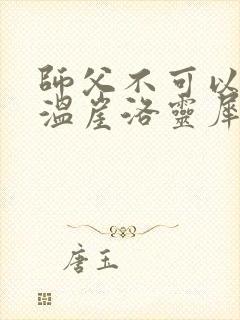 師父不可以
溫崖洛靈犀
唐玉